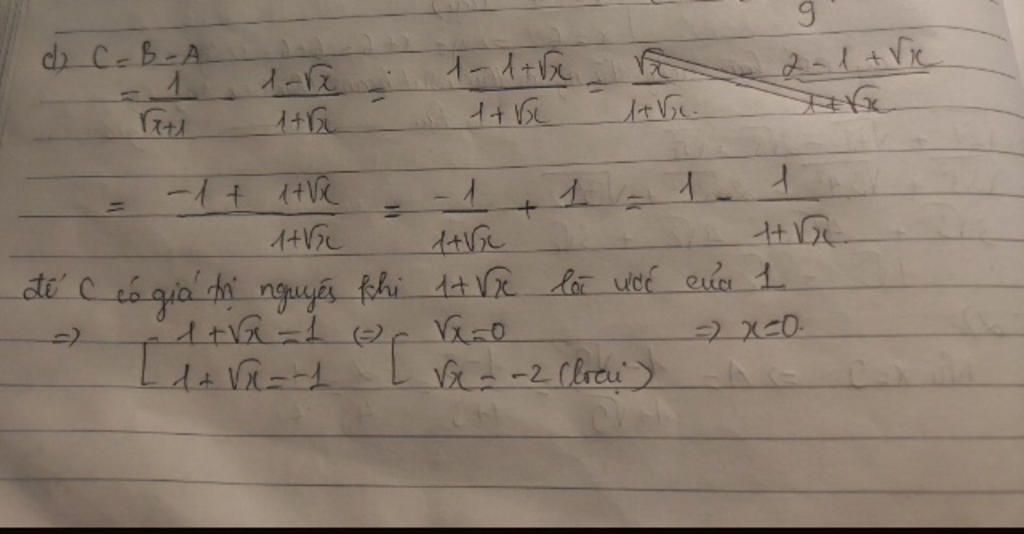 9
d) C = B - A
= 1/(√x+1) - (1-√x)/(1+√x) = (1-1+√x)/(1+√x) = √x/(1+√x) = (2-1+√x)/(1+√x)
= (-1 + 1+√x)/(1+√x) = -1/(1+√x) + 1 = 1 - 1/(1+√x)
để C có giá trị nguyên khi 1+√x là ước của 1
=> [ 1+√x = 1 (=) [ √x = 0 => x = 0.
1+√x = -1 √x = -2 (loại)